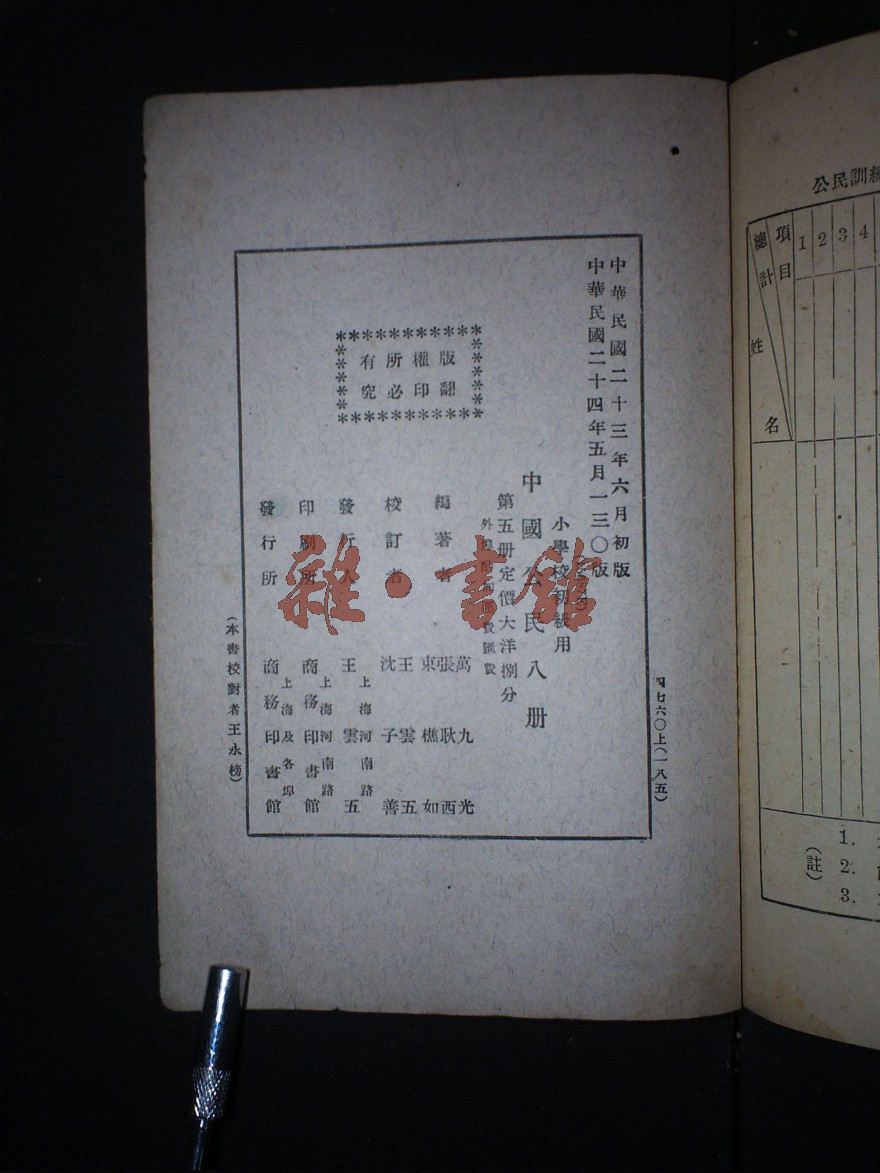 中華民國二十三年六月初版
中華民國二十四年五月一三〇版
小學校初級用
中國公民八册
第五册定價大洋捌分
外埠酌加運費匯費
版權所有
翻印必究
編著者
萬九光
張耿西
束樵如
校訂者
王雲五
沈子善
發行人
王雲五
上海河南路
印刷所
商務印書館
上海河南路
發行所
商務印書館
上海及各埠
(本書校對者王永榜)
四七六〇上(一八五)
雜·書館
公民訓練
項目
總計
姓名
1 2 3 4
(註)
1.
2.
3.